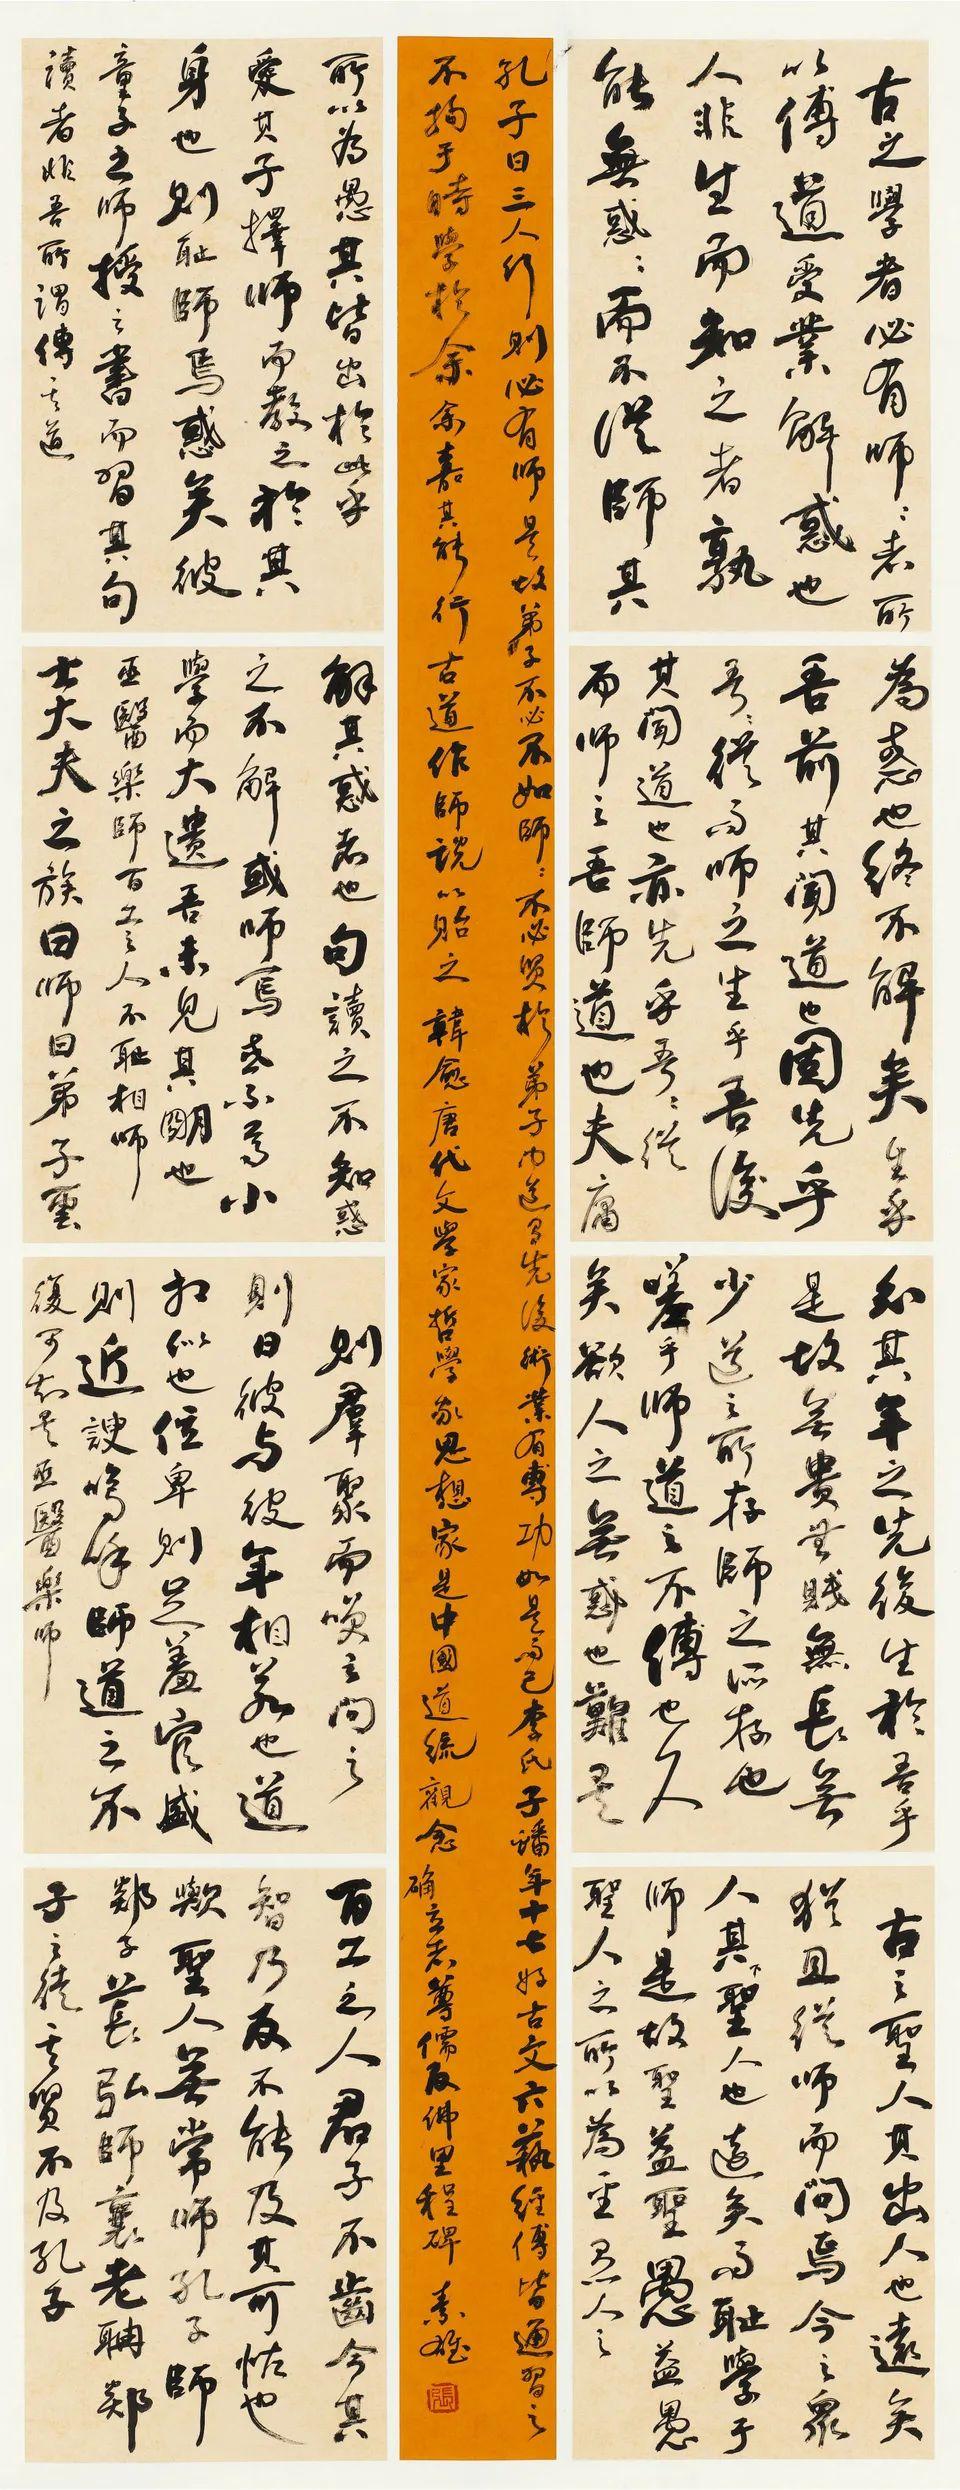 古之學者必有師〻者所
以傳道受業解惑也
人非生而知之者孰
能無惑〻而不從師其
為惑也終不解矣生乎
吾前其聞道也固先乎
吾〻從而師之生乎吾後
其聞道也亦先乎吾〻從
而師之吾師道也夫庸
知其年之先後生於吾乎
是故無貴無賤無長無
少道之所存師之所存也
嗟乎師道之不傳也久
矣欲人之無惑也難矣
古之聖人其出人也遠矣
猶且從師而問焉今之眾
人其下聖人也遠矣而恥學于
師是故聖益聖愚益愚
聖人之所以為聖愚人之
所以為愚其皆出於此乎
愛其子擇師而教之於其
身也則恥師焉惑矣彼
童子之師授之書而習其句
讀者非吾所謂傳其道
解其惑者也句讀之不知惑
之不解或師焉或不焉小
學而大遺吾未見其明也
巫醫樂師百工之人不恥相師
士大夫之族曰師曰弟子云
則羣聚而笑之問之
則曰彼與彼年相若也道
相似也位卑則足羞官盛
則近諛嗚呼師道之不
復可知矣巫醫樂師
百工之人君子不齒今其
智乃反不能及其可怪也
歟聖人無常師孔子師
郯子萇弘師襄老聃郯
子之徒其賢不及孔子
孔子曰三人行則必有師是故弟子不必不如師〻不必賢於弟子聞道有先後術業有專功如是而已李氏子蟠年十七好古文六藝經傳皆通習之
不拘于時學於余余嘉其能行古道作師說以貽之 韓愈唐代文學家哲學家思想家是中國道統觀念确立者尊儒反佛里程碑 素雄
張